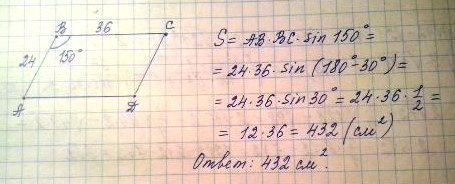 B 36 C
24 150°
A D
S = AB·BC·sin 150° =
= 24·36·sin (180°-30°) =
= 24·36·sin 30° = 24·36·1/2 =
= 12·36 = 432 (см²)
Ответ: 432 см².